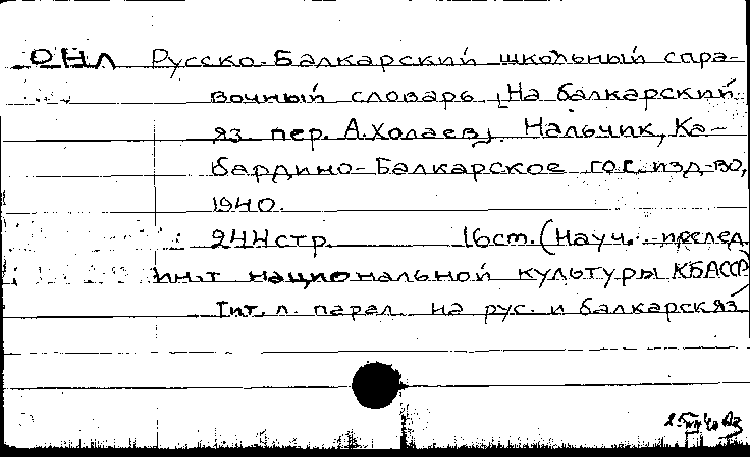 ОНЛ Русско-Балкарский школьный спра-
вочный словарь [На балкарский
яз. пер. А.Холаев]. Нальчик, Ка-
бардино-Балкарское гос. изд-во,
1940.
244стр. 16см. (Науч. -исслед.
ин-т национальной культуры КБАССР)
Тит. л. парал. на рус. и балкарск. яз.